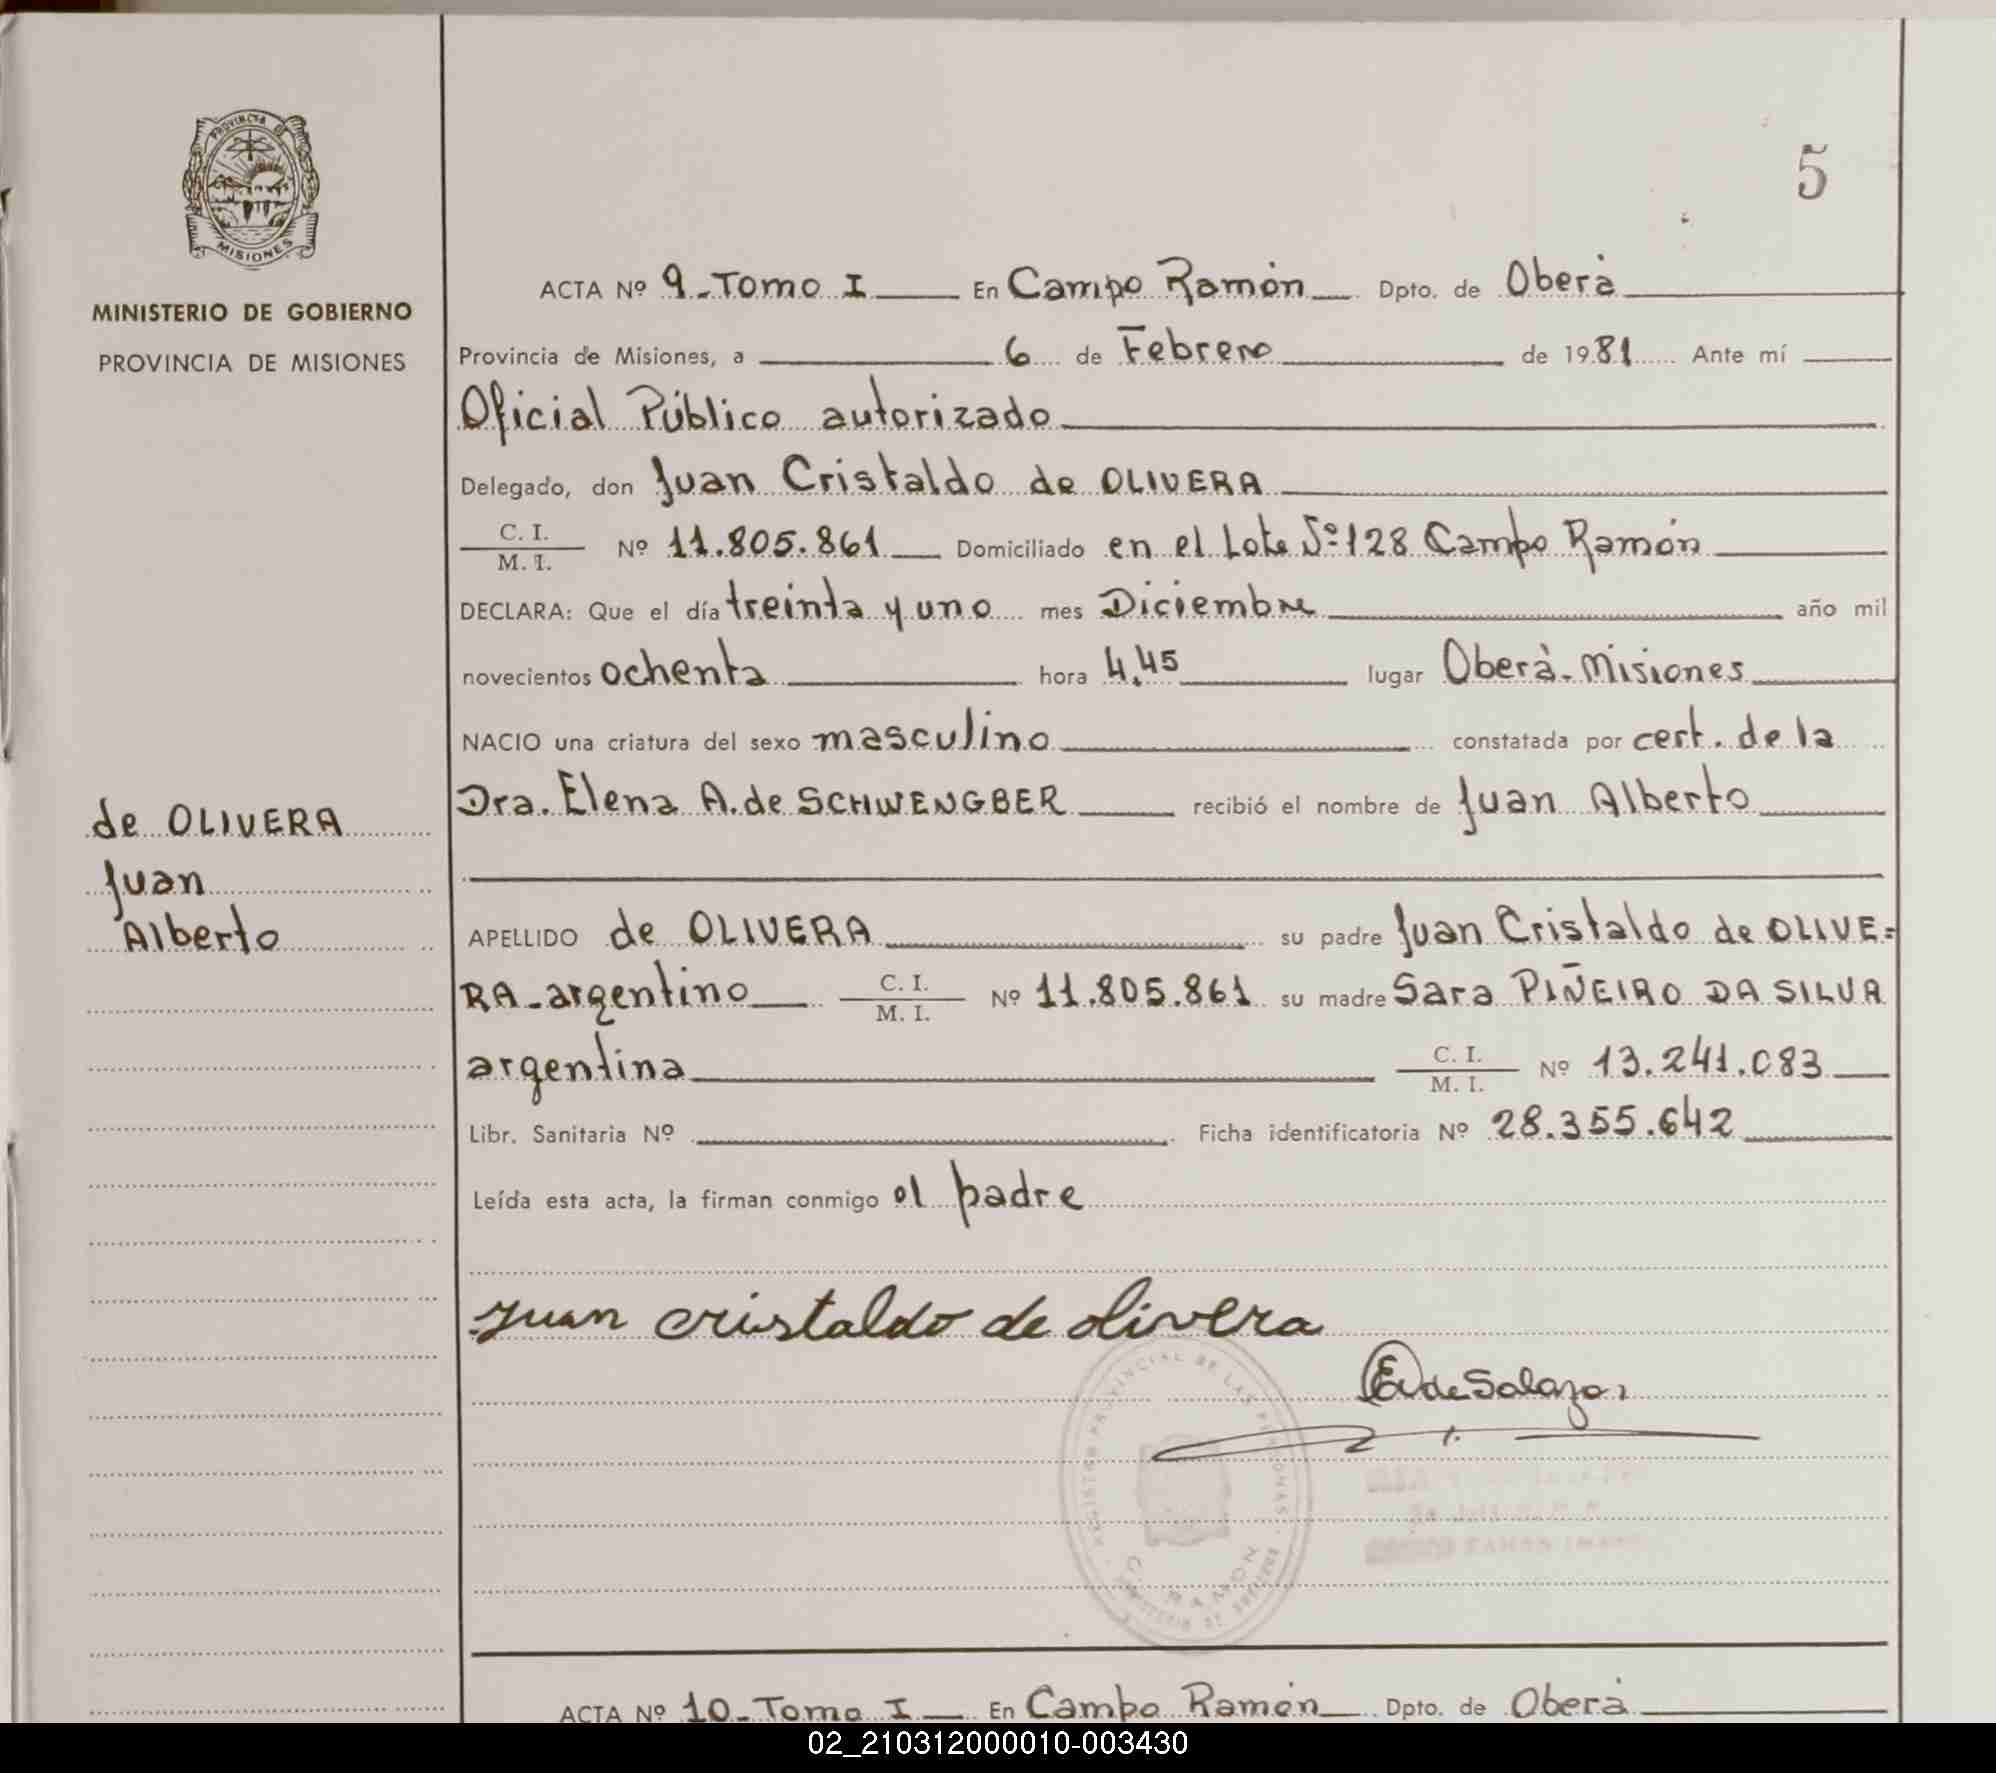 PROVINCIA DE
MISIONES
MINISTERIO DE GOBIERNO
PROVINCIA DE MISIONES
5
ACTA Nº 9-Tomo I En Campo Ramón Dpto. de Oberà
Provincia de Misiones, a 6 de Febrero de 1981 Ante mí
Oficial Público autorizado
Delegado, don Juan Cristaldo de OLIVERA
C. I.
M. I. Nº 11.805.861 Domiciliado en el Lote Nº 128 Campo Ramón
DECLARA: Que el día treinta y uno mes Diciembre año mil
novecientos ochenta hora 4,45 lugar Oberà-Misiones
NACIO una criatura del sexo masculino constatada por cert. de la
Dra. Elena A. de SCHWENGBER recibió el nombre de Juan Alberto
de OLIVERA
Juan
Alberto
APELLIDO de OLIVERA su padre Juan Cristaldo de OLIVE=
RA-argentino C. I.
M. I. Nº 11.805.861 su madre Sara PIÑEIRO DA SILVA
argentina C. I.
M. I. Nº 13.241.083
Libr. Sanitaria Nº Ficha identificatoria Nº 28.355.642
Leída esta acta, la firman conmigo el padre
Juan cristaldo de olivera
de Salazar
REGISTRO PROVINCIAL DE LAS PERSONAS
RAMON
ACTA Nº 10-Tomo I En Campo Ramón Dpto. de Oberà
02_210312000010-003430